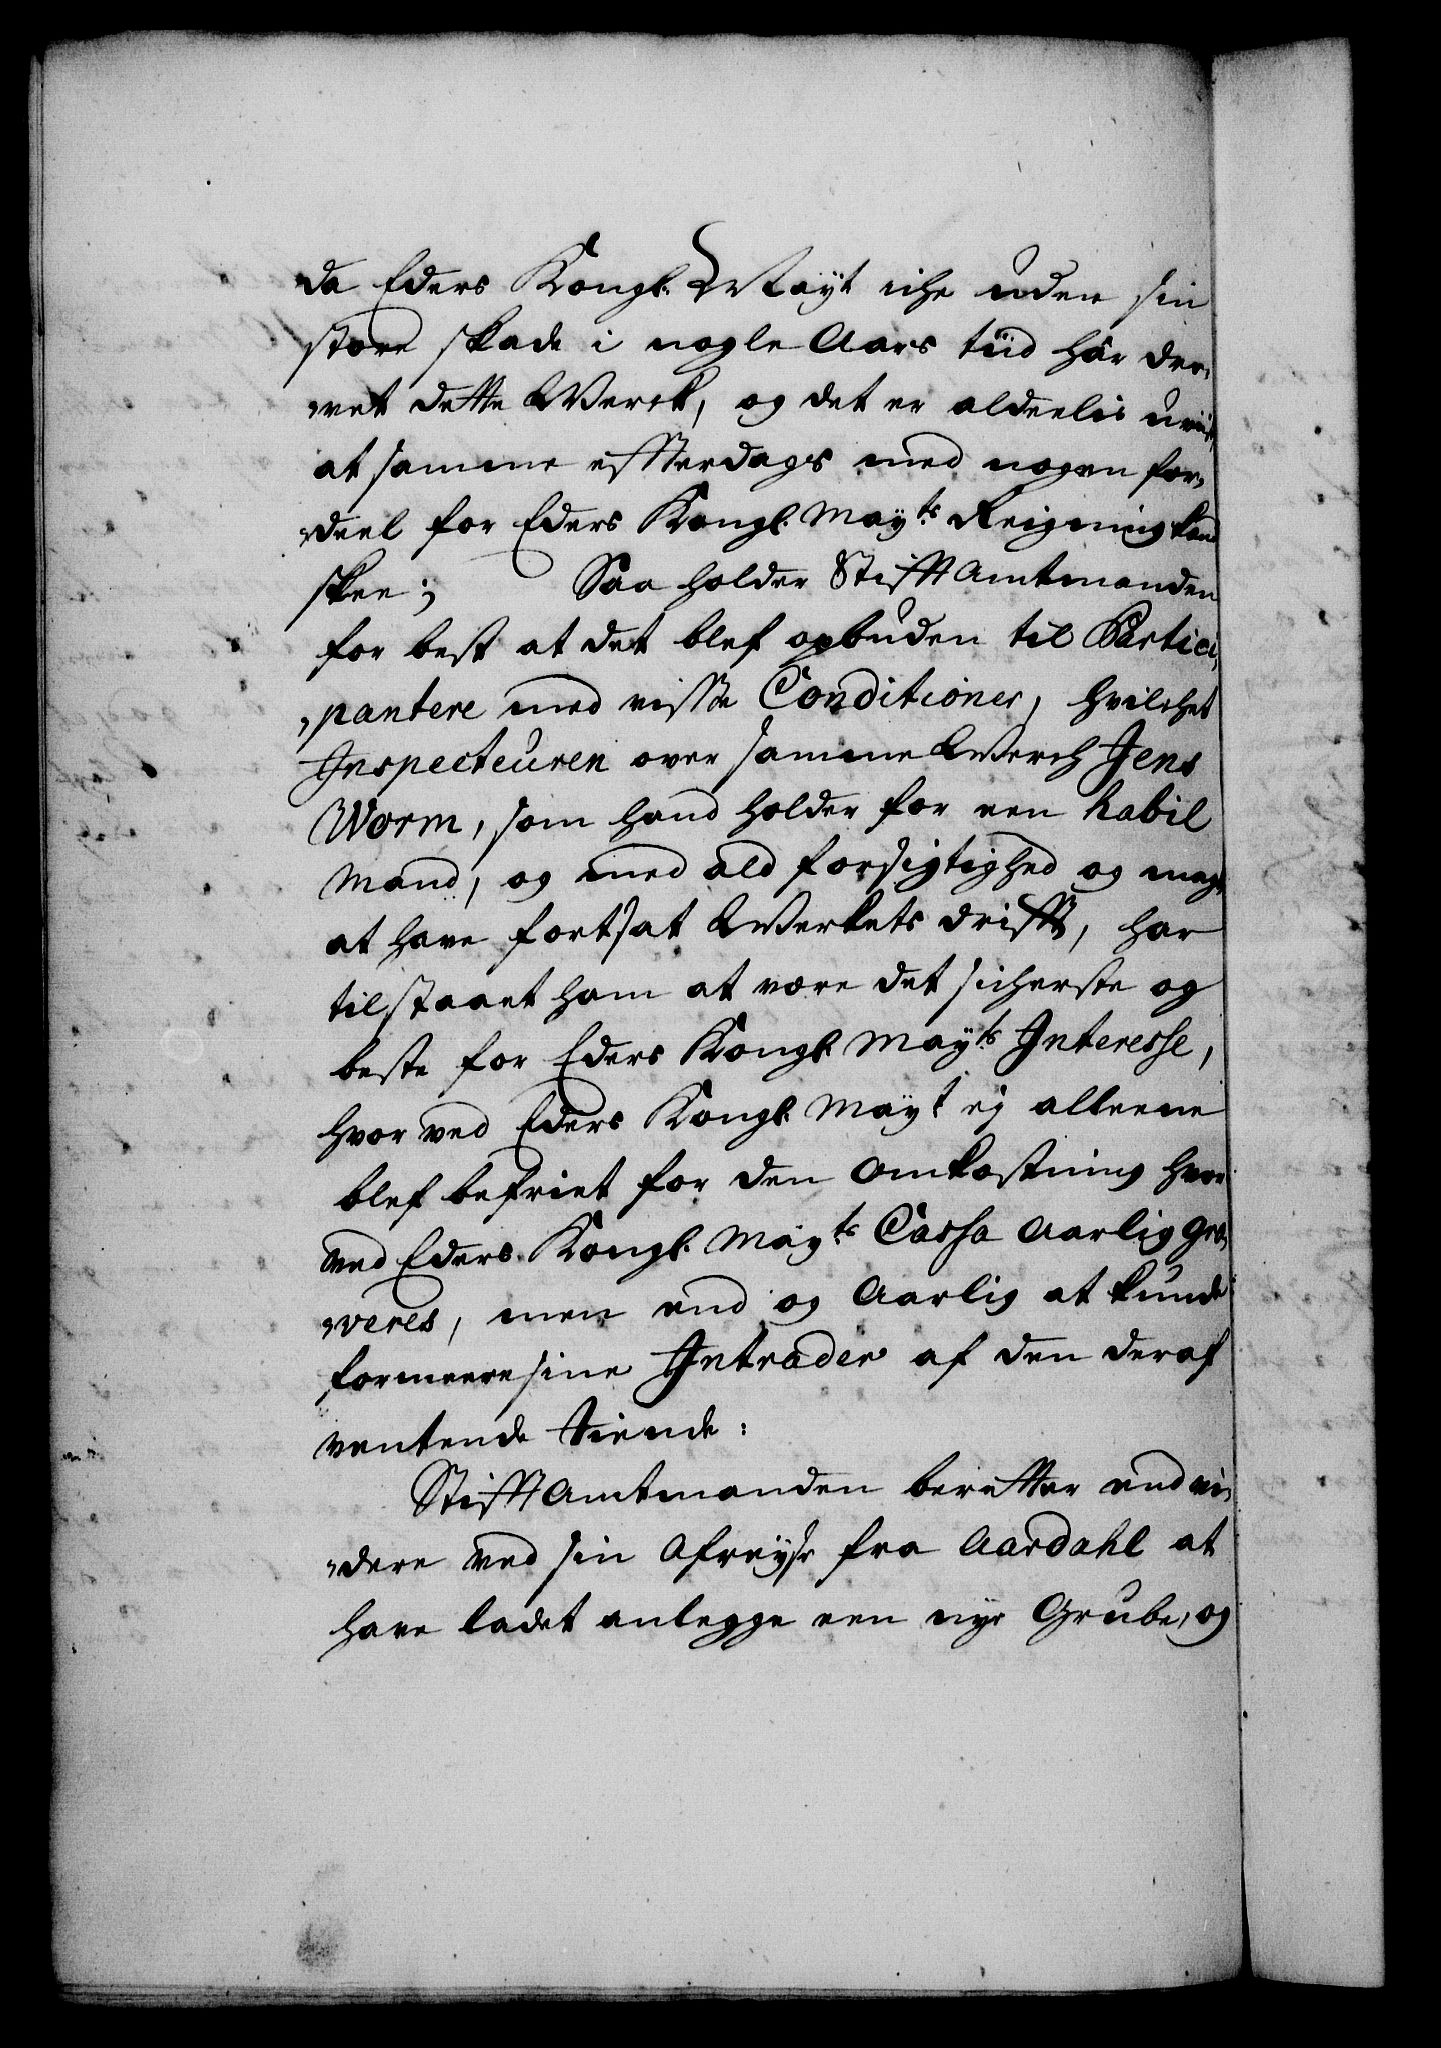 da Eders Kongl. Mayt iche uden sin
store skade i nogle Aars tiid har dre,
,,vet dette Werck, og det er aldeelis uvist,
at samme effterdags med nogen for,
,,deel for Eders Kongl. Mayts Reigning kand
skee; Saa holder Stifft Amtmanden
for best at det blef opbuden til Partici,
,,pantere med visse Conditioner, hvilchet
Inspecteuren over samme Werch Jens
Worm, som hand holder for een habil
Mand, og med ald forsigtighed og magt
at have fortsat Werkets drifft, har
tilstaaet ham at være det sicherste og
beste for Eders Kongl. Mayts Interesse,
hvor ved Eders Kongl. Mayt ej alleene
blef befriet for den Omkostning hvor
ved Eders Kongl. Mayts Cassa Aarlig gra,
,,veres, men end og Aarlig at kunde
formeere sine Intrader af den deraf
ventende tiende:
Stifft Amtmanden beretter end vi,
,,dere ved sin Afreyse fra Aardahl at
have ladet anlegge een nye Grube, og